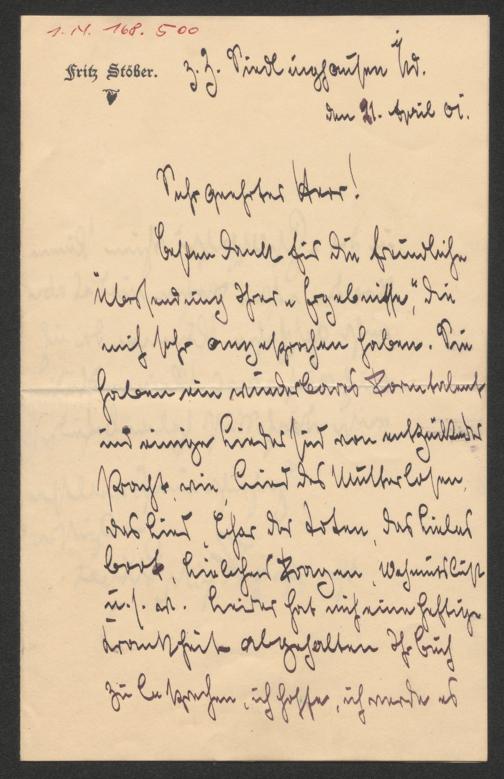 1. N. 168. 500
Fritz Stöber.
z. Z. Siedlinghausen
den 21. April 01.
Sehr geehrter Herr!
Besten Dank für die freundliche
Übersendung Ihrer „Ergebnisse“, die
mich sehr angesprochen haben. Sie
haben ein wunderbares Formtalent
und einige Lieder sind von entzückender
Pracht, wie, Lied des Mutterlosen,
das Lied, Chor der Toten, das
boot, Fragen, Wehmutsluft
u. s. w. Leider hat mich eine heftige
Krankheit abgehalten Ihr Buch
zu besprechen, ich hoffe, ich werde es